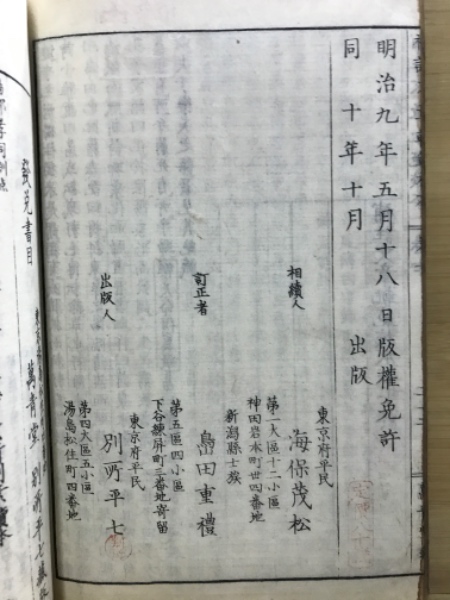 明治九年五月十八日版權免許
同十年十月出版
相續人
東京府平民
海保茂松
第一大區十二小區
神田岩本町廿四番地
訂正者
新潟縣士族
島田重禮
第五區四小區
下谷練屏町二番地寄留
出版人
東京府平民
別所平七
第四大區五小區
湯島松住町四番地
發兌書目
萬青堂 別所平七